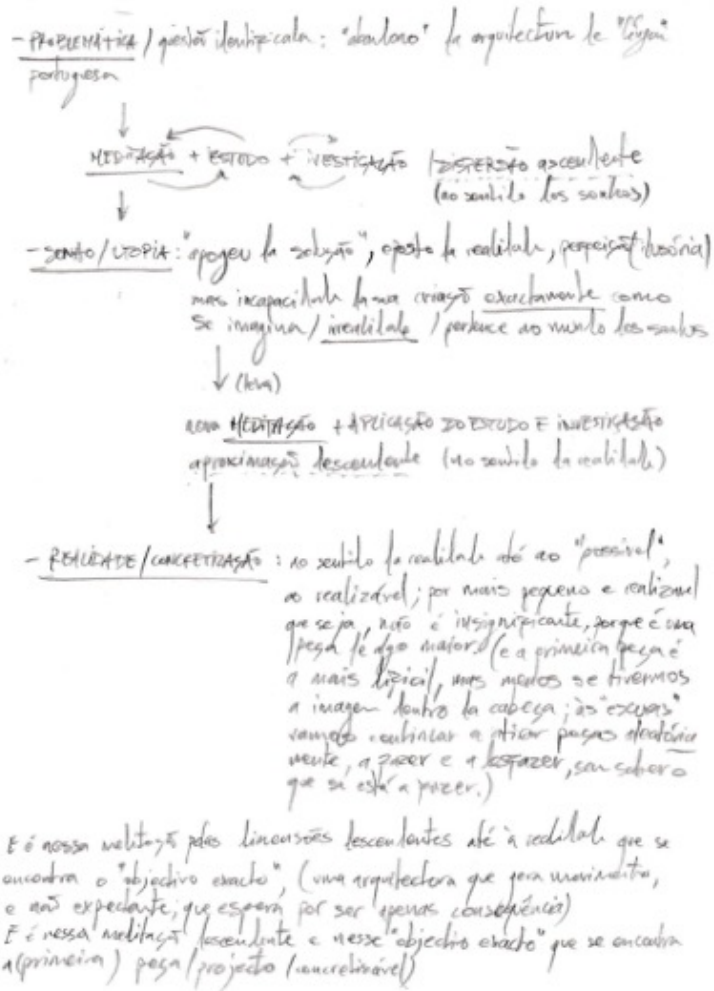 - PROBLEMÁTICA / questão identificada: "abandono" da arquitectura de "origem"
portuguesa
MEDITAÇÃO + ESTUDO + IVESTIGAÇÃO / DISPERSÃO ascendente
(no sentido dos sonhos)
- SONHO/UTOPIA: "apogeu da solução", oposto da realidade, perfeição (ilusória)
mas incapacidade da sua criação exactamente como
se imagina / irrealidade / pertence ao mundo dos sonhos
(leva)
nova MEDITAÇÃO + APLICAÇÃO DO ESTUDO E INVESTIGAÇÃO
aproximação descendente (no sentido da realidade)
- REALIDADE/CONCRETIZAÇÃO: no sentido da realidade até ao "possível",
ao realizável; por mais pequeno e realizável
que seja, não é insignificante, porque é uma
peça de algo maior. (e a primeira peça é
a mais difícil, mas menos se tivermos
a imagem dentro da cabeça; às "escuras"
vamos continuar a atirar peças aleatória
mente, a fazer e a desfazer, sem saber o
que se está a fazer.)
E é nessa meditação pelas dimensões descendentes até à realidade que se
encontra o "objectivo exacto", (uma arquitectura que gera movimento,
e não expectante, que espera por ser apenas consequência)
E é nessa meditação descendente e nesse "objectivo exacto" que se encontra
a (primeira) peça / projecto / concretizável)